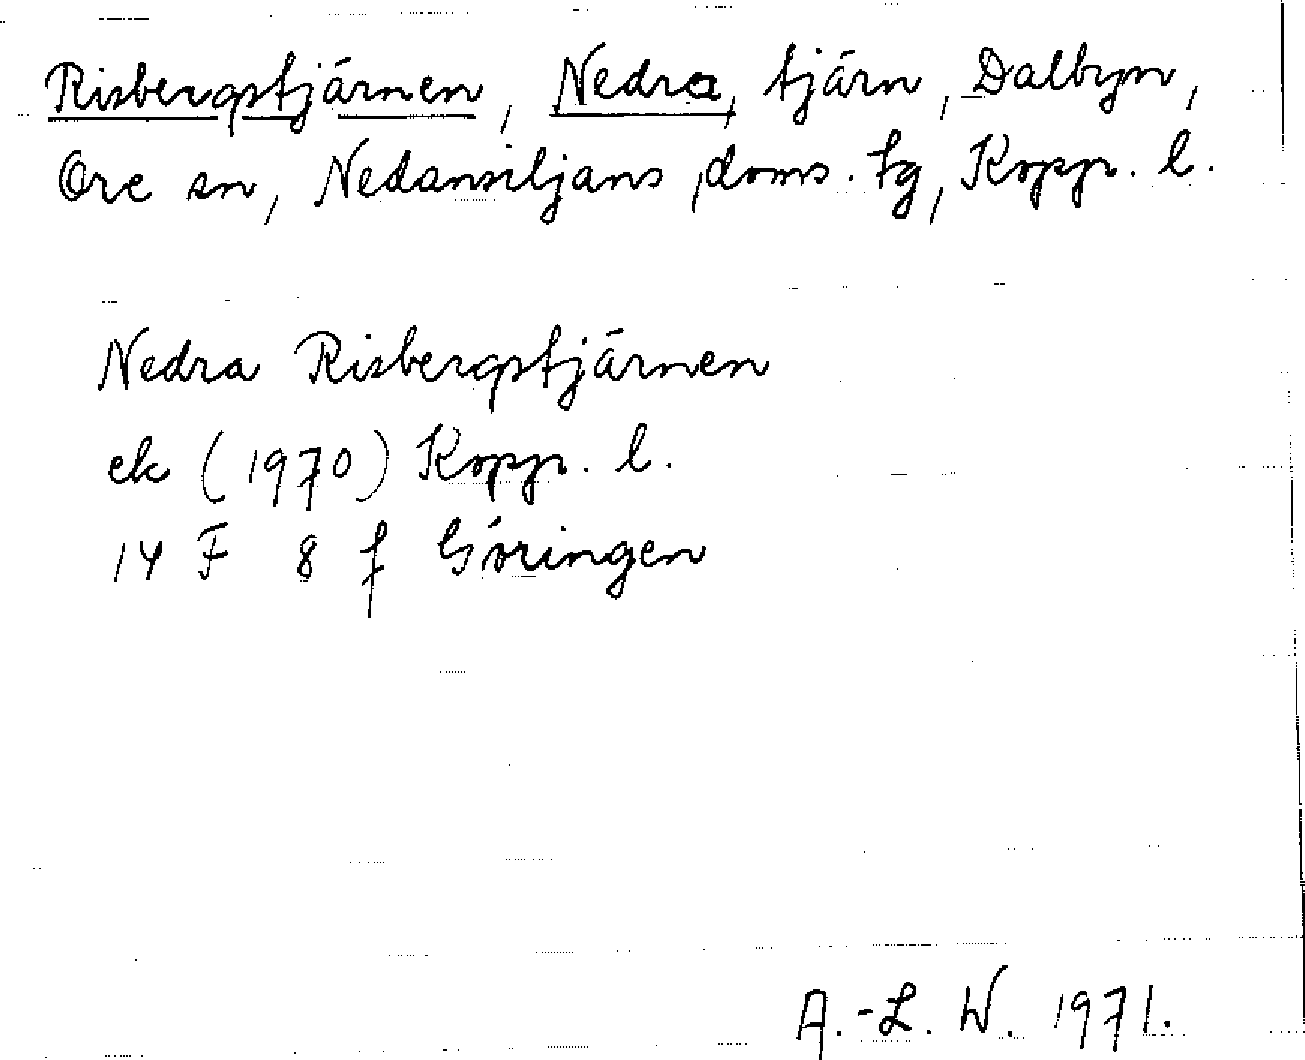 Risbergstjärnen, Nedra, tjärn, Dalbyn,
Ore sn, Nedansiljans doms. tg, Kopp. l.
Nedra Risbergstjärnen
ek (1970) Kopp. l.
14 F 8 f Göringen
A.-L. W. 1971.